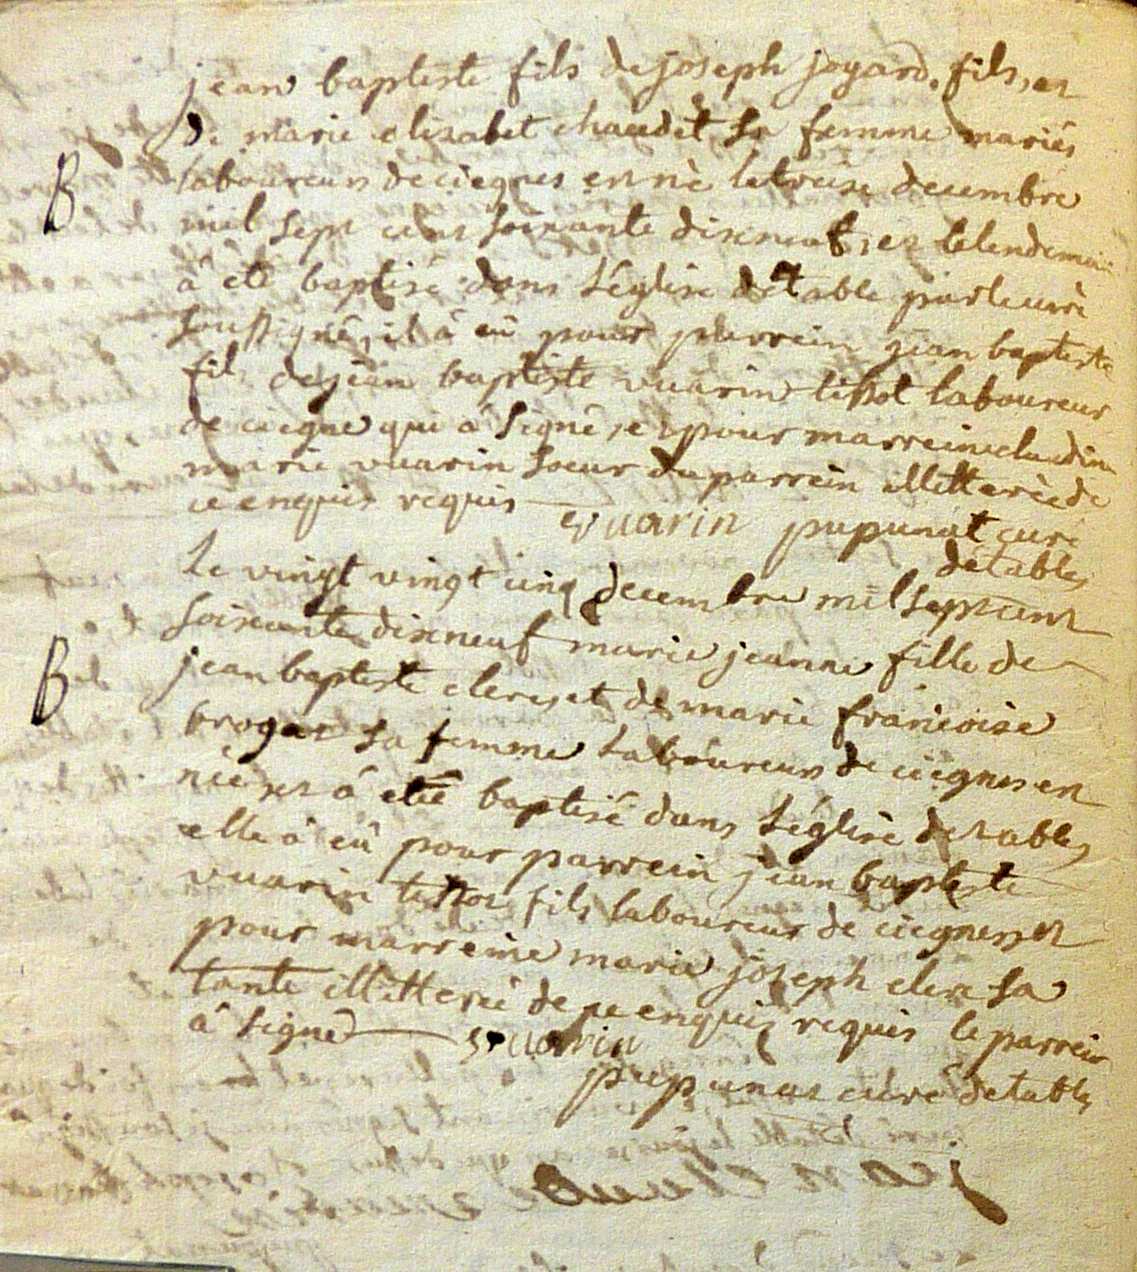 jean baptiste fils de joseph joyard, fils, et
De marie elisabet chaudet sa femme mariés
B
laboureurs de ciegnes en né le treise decembre
mil sept cens soixante disneuf, et le lendemain
â été baptisé dans l'église d'etable par le curé
soussigné, il â eû pour parrein jean baptiste
fils de jean baptiste vuarin tissot laboureur
de ciegne qui â signé, et pour marreine claudine
marie vuarin soeur du parrein illitterèe de
ce enquis requis vuarin pupunat curé
détables
Le vingt vingt cinq decembre mil sept cent
soixante dixneuf marie jeanne fille de
B
jean baptiste clerc et de marie francoise
brogat sa femme Laboureurs de ciegnes en
née et â eté baptisé dans l'église detables
elle â eû pour parrein jean baptiste
vuarin tissot fils laboureur de ciegnes, et
pour marreine marie joseph clerc sa
tante illitterée de ce enquis requis le parrein
â signé vuarin
pupunat curé detables